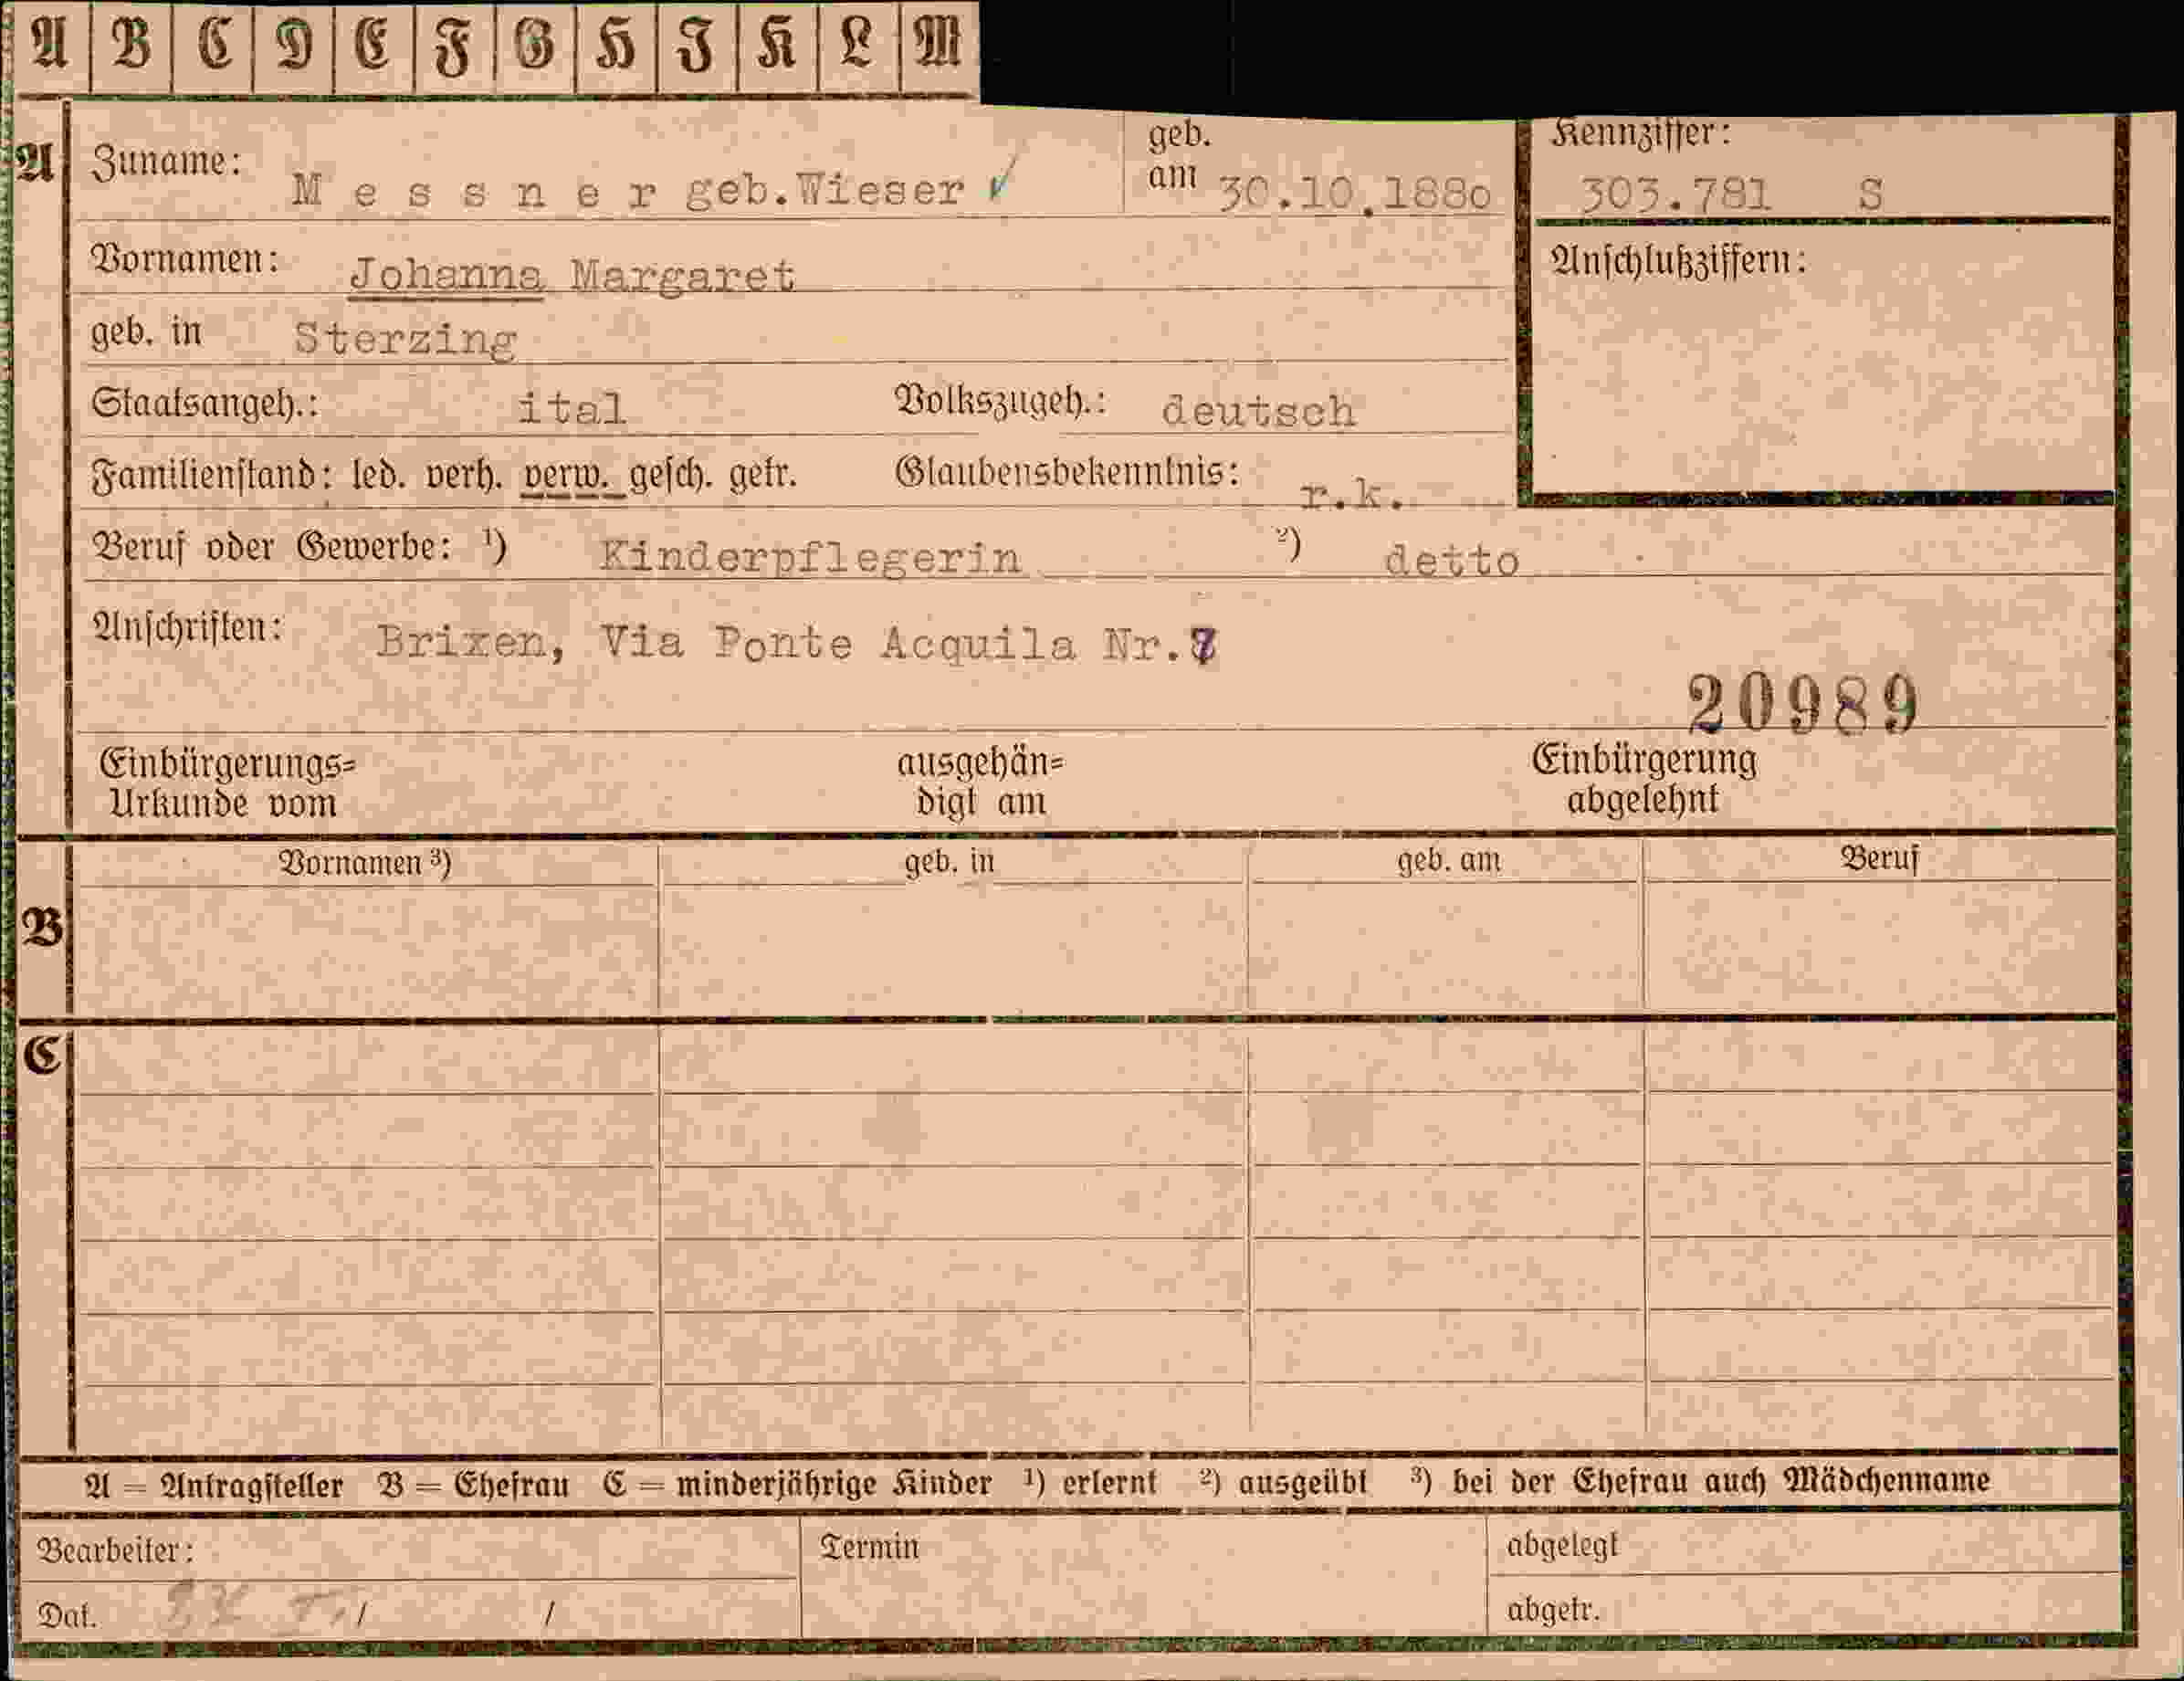 A B C D E F G H J K L M
A Zuname: Messner geb.Wieser ✓ geb. am 30.10.1880 Kennziffer: 303.781 S
Vornamen: Johanna Margaret Anschlußziffern:
geb. in Sterzing
Staatsangeh.: ital Volkszugeh.: deutsch
Familienstand: led. verh. verw. gesch. getr. Glaubensbekenntnis: r.k.
Beruf oder Gewerbe: ¹) Kinderpflegerin ²) detto
Anschriften: Brixen, Via Ponte Acquila Nr.7
20989
Einbürgerungs= ausgehän= Einbürgerung
Urkunde vom digt am abgelehnt
Vornamen ³) geb. in geb. am Beruf
B
C
A = Antragsteller B = Ehefrau C = minderjährige Kinder ¹) erlernt ²) ausgeübt ³) bei der Ehefrau auch Mädchenname
Bearbeiter: Termin abgelegt
Dat. / / abgetr.